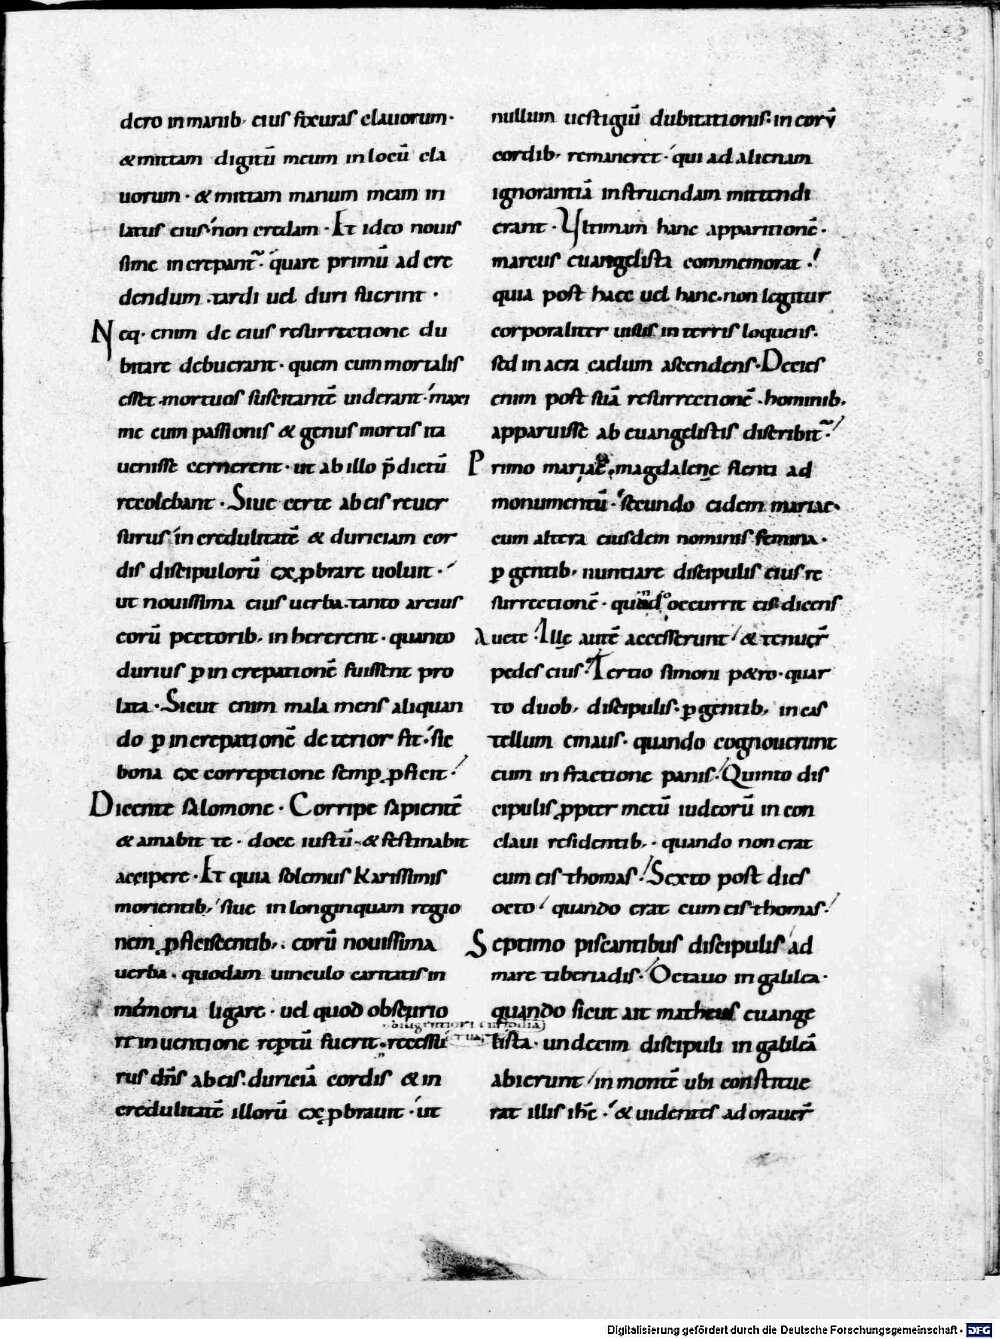 dero in manib; eius fixuras clavorum·
& mittam digitū meum in locū cla
uorum· & mittam manum meam in
latus eius· non credam· Et ideo nouis
sime increpant᷑· quare primū ad cre
dendum tardi uel duri fuerint·
Neq· enim de eius resurrectione du
bitare debuerant· quem cum mortalis
esset· mortuos suscitantē uiderant· maxi
me cum passionis & genus mortis ita
uenisse cernerent· ut ab illo p̄dictū
recolebant· Siue certe ab eis reuer
surus· incredulitatē & duriciam cor
dis discipulorū exꝓbrare uoluit·
ut nouissima eius uerba· tanto arcius
corū pectorib; inhererent· quanto
durius ꝑ increpationē fuissent pro
lata· Sicut enim mala mens aliquan
do ꝑ increpationē deterior fit· sic
bona ex correptione semꝑ ꝓficit·
Dicente salomone· Corripe sapientē
& amabit te· doce iustū· & festinabit
accipere· Et quia solemus karissimis
morientib; siue in longinquam regio
nem ꝓficiscentib;· corū nouissima
uerba· quodam uinculo caritatis in
memoria ligare· uel quod obseqrio
ri inuentione reptū fuerit· recessu
rus dn̄s ab eis· duriciā cordis & in
credulitatē illorū exꝓbrauit· ut
nullum uestigiū dubitationis· in corū
cordib; remaneret· qui ad alienam
ignorantiā instruendam mittendi
erant· Vltimam hanc apparitionē·
marcus euangelista commemorat·
quia post haec uel hanc· non legitur
corporaliter uisus in terris loquens·
sed in aera caelum ascendens· Decies
enim post suā resurrectionē· hominib;
apparuisse ab euangelistis discribit᷑·
Primo mariae magdalenę flenti ad
monumentū· secundo eidem mariae·
cum altera eiusdem nominis femina·
ꝑgentib; nuntiare discipulis eius re
surrectionē· quando occurrit eis dicens
Auete· Ille autē accesserunt & tenuer̄
pedes eius· Tertio simoni p&ro· quar
to duob; discipulis· ꝑgentib; in cas
tellum emaus· quando cognouerunt
eum in fractione panis· Quinto dis
cipulis ꝓpter metū iudeorū in con
claui residentib;· quando non erat
cum eis thomas· Sexto post dies
octo quando erat cum eis thomas·
Septimo piscantibus discipulis ad
mare tiberiadis· Octauo in galilea·
quando sicut ait matheus euange
lista· undecim discipuli in galileā
abierunt in montē ubi constitue
rat illis ih̄c· & uidentes adorauer̄
Digitalisierung gefördert durch die Deutsche Forschungsgemeinschaft · DFG